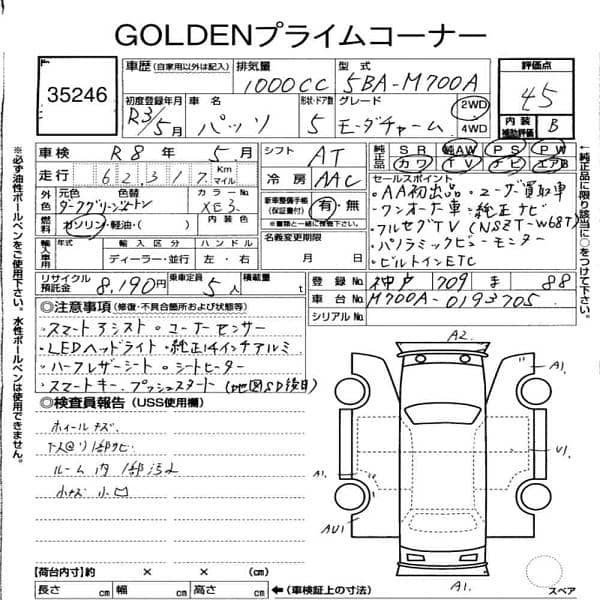 GOLDENプライムコーナー
35246
車歴 (自家用以外は記入) 排気量 1000CC 型式 5BA-M700A
評価点 45
内装補助評価 B
初度登録年月 R3/5月 車名 パッソ 形状・ドア数 5 グレード モーダチャーム 2WD 4WD
車検 R8年 5月 シフト AT
純正品 SR 純AW PS PW
カワ TV ナビ エアB
走行 62317 Km マイル 冷房 AAC
外装 元色 色替 カラーNo. XE3
ダークグリーンツートン
燃料 ガソリン・軽油・( ) 内装色
新車整備手帳(保証書付) 有・無
※書類と一緒に保管して下さい。
輸入車用 年式 輸入区分 ハンドル
ディーラー・並行 左・右
名義変更期限 月 日
セールスポイント
・AA初出品・ユーザー買取車
・ワンオーナー車・純正ナビ
・フルセグTV(NSZT-W68T)
・パノラミックビューモニター
・ビルトインETC
リサイクル預託金 8,190円 乗車定員 5人 積載量 t
登録No. 神戸 709 ま 88
車台No. M700A-0193705
シリアルNo.
◎注意事項 (修復・不具合箇所および状態等)
・スマートアシスト・コーナーセンサー
・LEDヘッドライト・純正14インチアルミ
・ハーフレザーシート・シートヒーター
・スマートキー・プッシュスタート(地図SD後日)
◎検査員報告 (USS使用欄)
ホイールキズ
下廻り1部サビ
ルーム内 1部汚れ
小キズ 小凹
A2.
A1.
A1.
U1
AU1
A1.
スペア
【荷台内寸】約 × × (cm)
長さ cm 幅 cm 高さ cm ←(車検証上の寸法)
※必ず油性ボールペンをご使用下さい。水性ボールペンは使用できません。
←純正品に限り該当に○をつけて下さい。